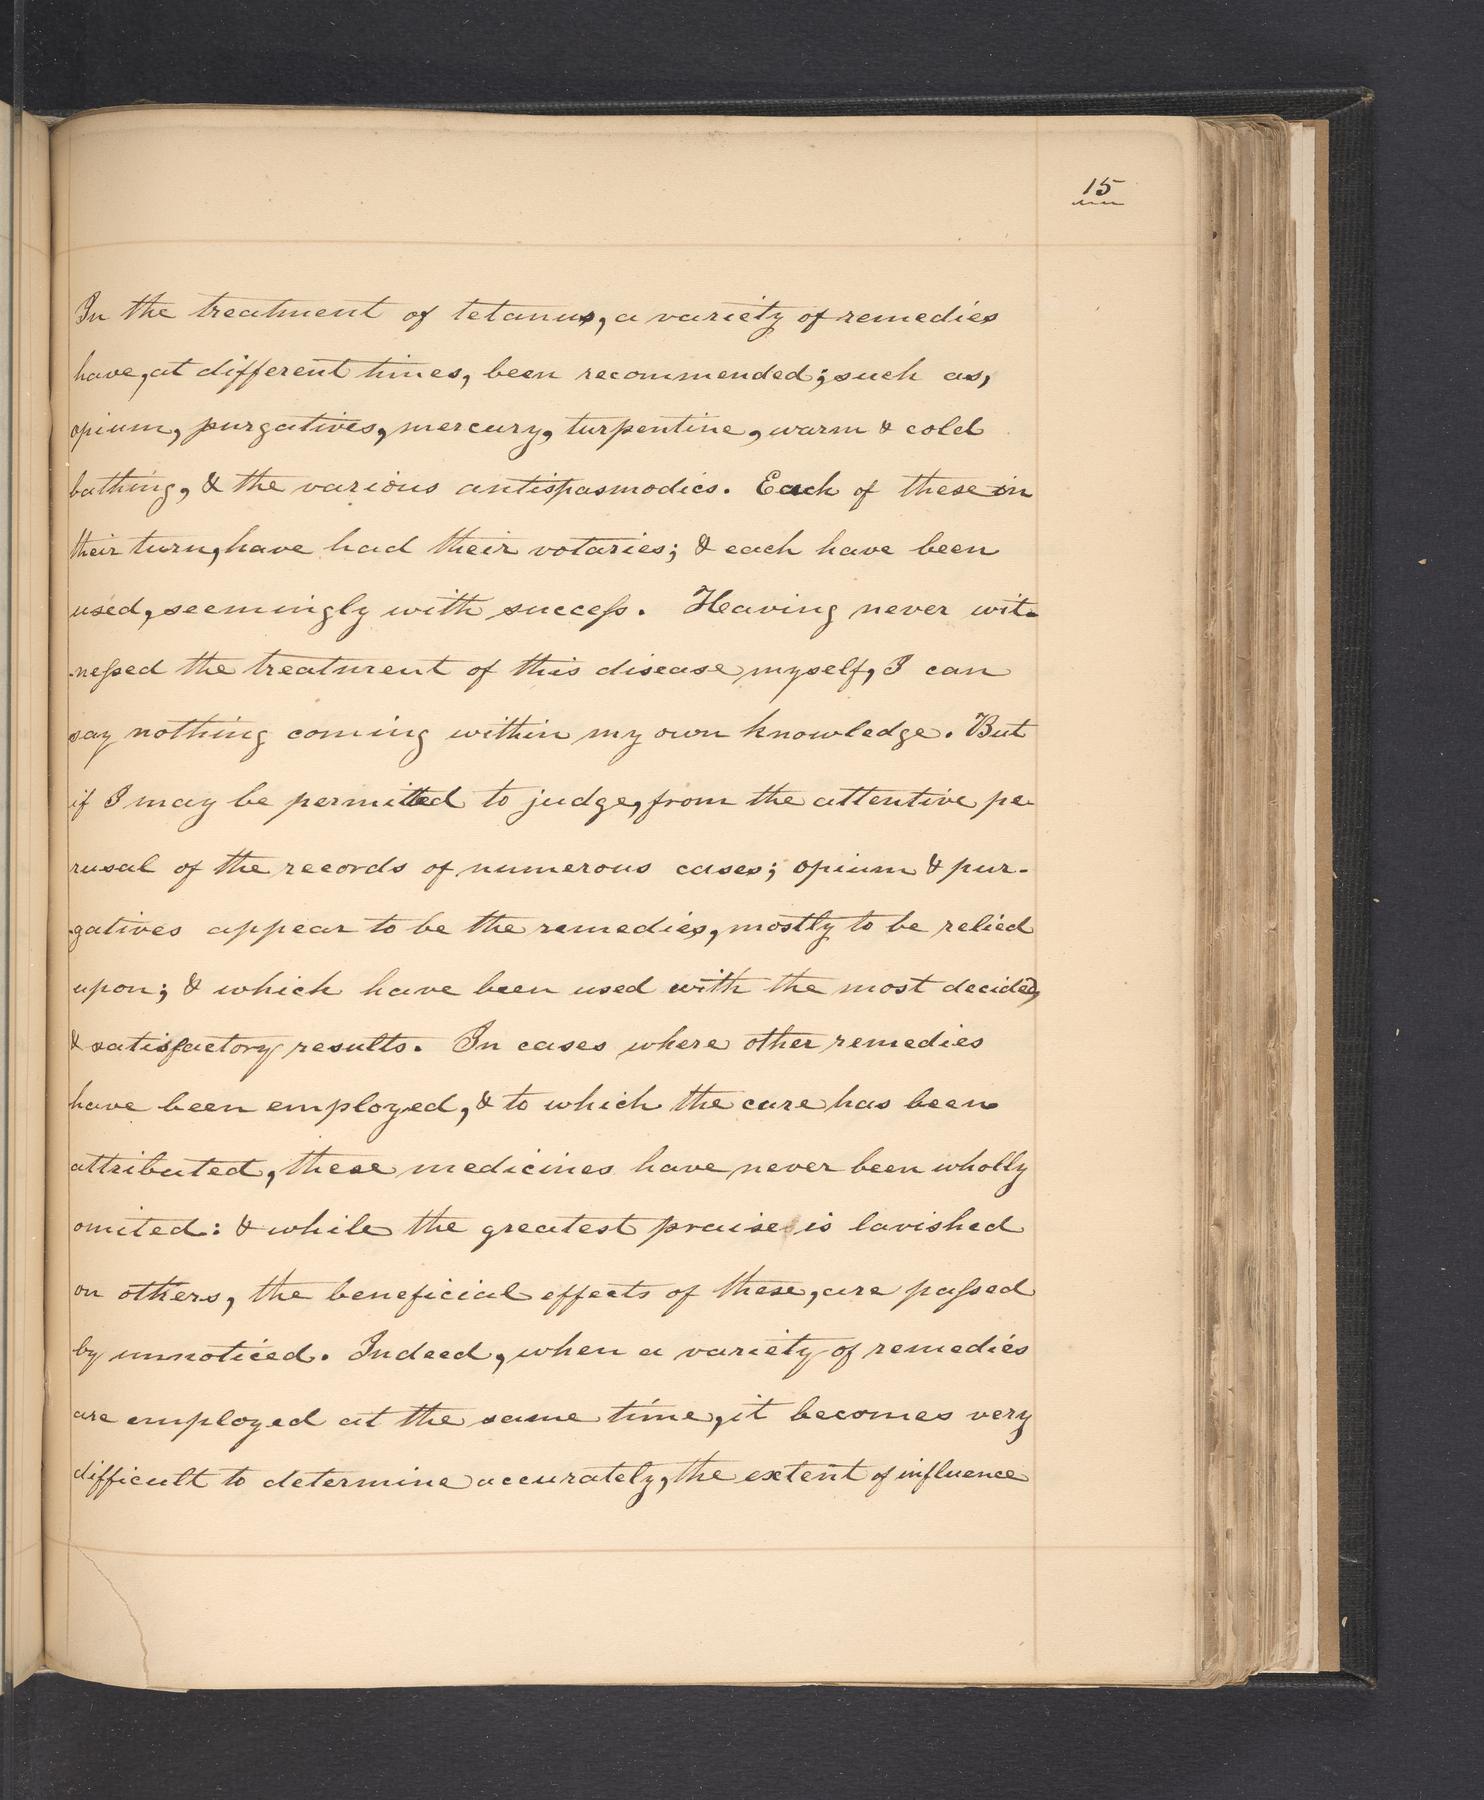 15
In the treatment of tetanus, a variety of remedies
have, at different times, been recommended; such as,
opium, purgatives, mercury, turpentine, warm & cold
bathing, & the various antispasmodics. Each of these in
their turn, have had their votaries; & each have been
used, seemingly with succeſs. Having never wit-
-neſsed the treatment of this disease myself, I can
say nothing coming within my own knowledge. But
if I may be permitted to judge, from the attentive pe-
rusal of the records of numerous cases; opium & pur-
gatives appear to be the remedies, mostly to be relied
upon; & which have been used with the most decided,
& satisfactory results. In cases where other remedies
have been employed, & to which the cure has been
attributed, these medicines have never been wholly
omited: & while the greatest praise is lavished
on others, the beneficial effects of these, are paſsed
by unnoticed. Indeed, when a variety of remedies
are employed at the same time, it becomes very
difficult to determine accurately, the extent of influence